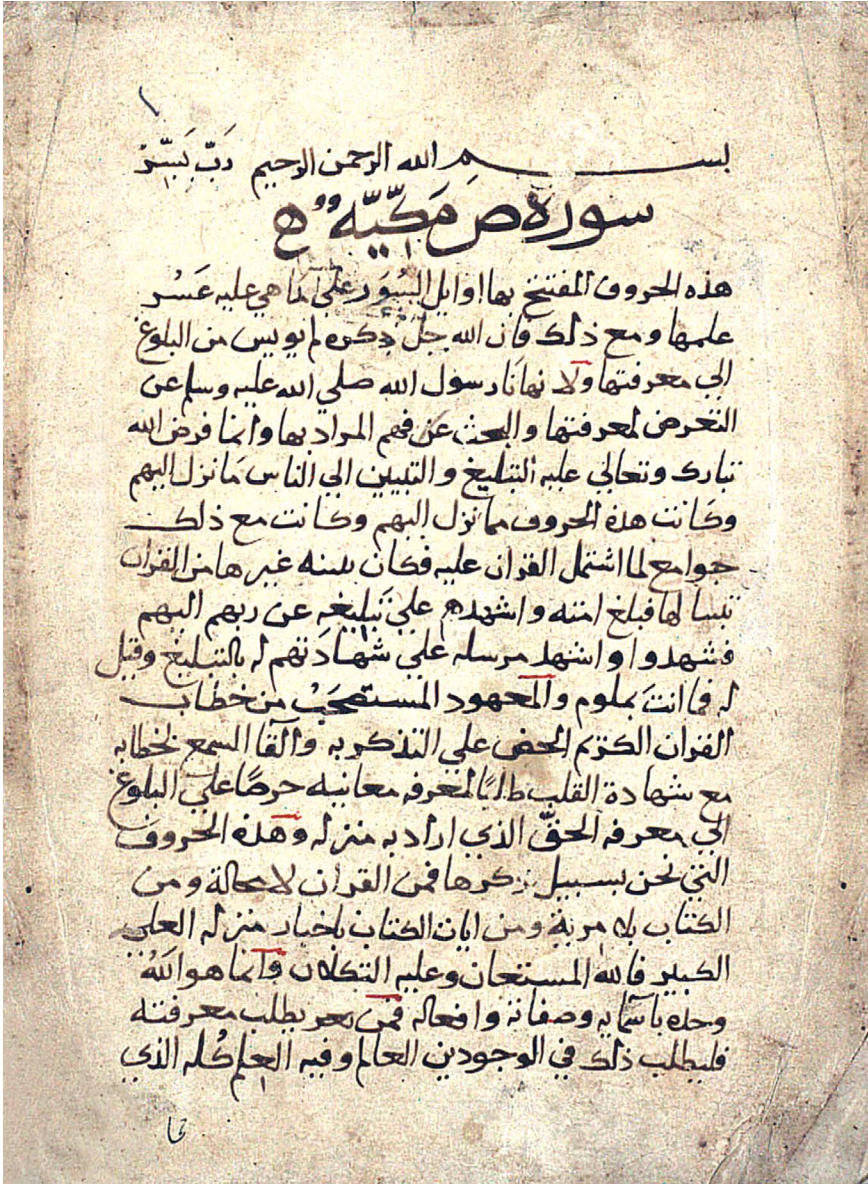 بسم الله الرحمن الرحيم رَبّ يَسِّرْ
سورة ص مَكِّيَّه
هذه الحروف المفتتح بها اوايل السُوَر على ما هي عليه عَسُر
علمها ومع ذلك فان الله جل ذكره لم يويس من البلوغ
الي معرفتها ولا نهانا رسول الله صلي الله عليه وسلم عن
التعرض لمعرفتها والبحث عن فهم المراد بها وانما فرض الله
تبارك وتعالي عليه التبليغ والتبيين الي الناس مَا نزل اليهم
وكانت هذه الحروف مما نزل اليهم وكانت مع ذلك
جوامع لما اشتمل القران عليه فكان يبينه غيرها من القران
لها فبلغ امته واشهدهم علي تَبليغه عن ربهم اليهم
فشهدوا واشهد مرسله علي شهادَتهم له بالتبليغ وقيل
له فما انتَ بملوم والمعهود المستصحَبْ من خطاب
القران الكريم الحض علي التذكر به والقا السمع لخطابه
مع شهادة القلب طلبًا لمعرفه معانيه حرصًا علي البلوغ
الي معرفه الحقّ الذي اراد به منزله وهذه الحروف
التي نحن بسبيل ذكرها فمن القران لا محالة ومن
الكتاب بلا مرية ومن ايات الكتاب باخبار منزله العلي
الكبير فالله المستعان وعليه التكلان وانما هو اللهُ
وحده باسمايه وصفاته وافعاله فمن يطلب معرفته
فليطلب ذلك في الوجودين العالم وفيه العِلم كُله الذي